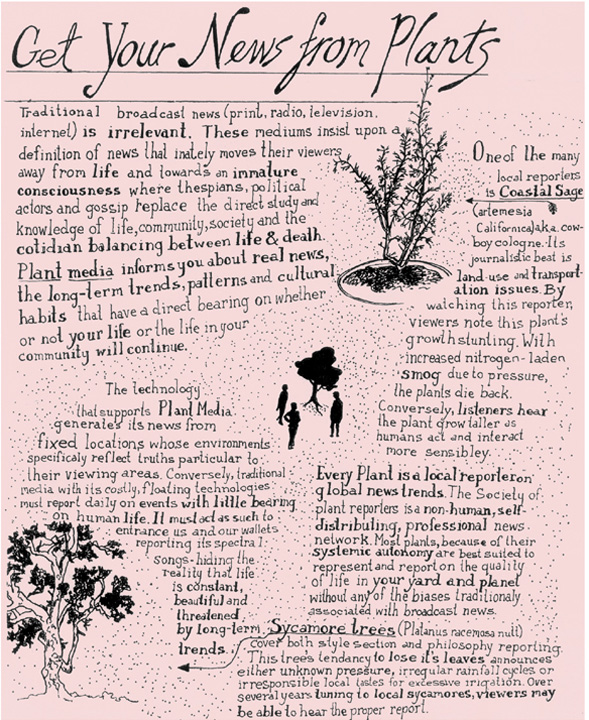 Get Your News from Plants
Traditional broadcast news (print, radio, television,
internet) is irrelevant. These mediums insist upon a
definition of news that inately moves their viewers
away from life and towards an immature
consciousness where thespians, political
actors and gossip replace the direct study and
knowledge of life, community, society and the
cotidian balancing between life & death.
Plant media informs you about real news,
the long-term trends, patterns and cultural
habits that have a direct bearing on whether
or not your life or the life in your
community will continue.
One of the many
local reporters
is Coastal Sage
(artemesia
Californica) a.k.a. cow-
boy cologne. Its
journalistic beat is
land-use and transport-
ation issues. By
watching this reporter,
viewers note this plant's
growth stunting. With
increased nitrogen-laden
smog due to pressure,
the plants die back.
Conversely, listeners hear
the plant grow taller as
humans act and interact
more sensibley.
The technology
that supports Plant Media
generates its news from
fixed locations whose environments
specificaly reflect truths particular to
their viewing areas. Conversely, traditional
media with its costly, floating technologies
must report daily on events with little bearing
on human life. It must act as such to
entrance us and our wallets
reporting its spectral
songs - hiding the
reality that life
is constant,
beautiful and
threatened
by long-term
trends.
Every Plant is a local reporter on
global news trends. The Society of
plant reporters is a non-human, self-
distributing, professional news
network. Most plants, because of their
systemic autonomy are best suited to
represent and report on the quality
of life in your yard and planet
without any of the biases traditionaly
associated with broadcast news.
Sycamore trees (Platanus racemosa nutt)
cover both style section and philosophy reporting.
This trees tendancy to lose it's leaves announces
either unknown pressure, irregular rainfall cycles or
irresponsible local tastes for excessive irrigation. Over
several years tuning to local sycamores, viewers may
be able to hear the proper report.